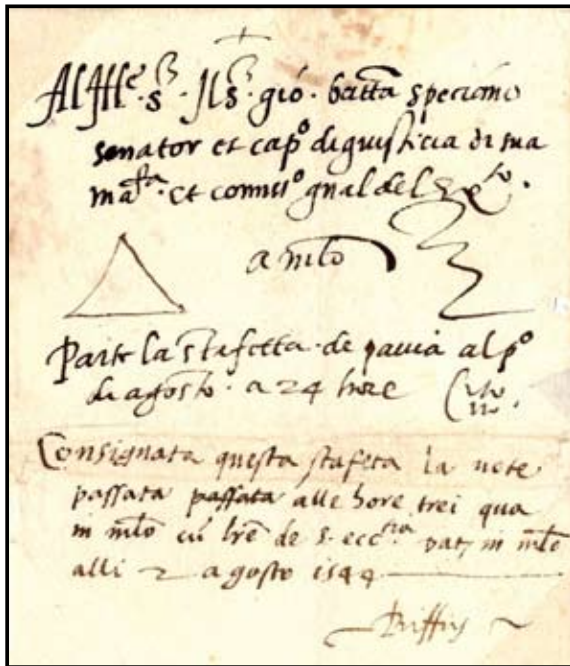 Al Ille. s.or Il s.or gió. batta speciano
senator et cap.o di giusticia di sua
ma.ta et commiss.o gnal del
a mlo
Parte la staffetta de pavia al p.o
di agosto. a 24 hore Cito
Consignata questa staffeta la note
passata passata alle hore trei qua
in mlo cu lre de s. ecc.tia in mlo
alli 2 agosto 1544